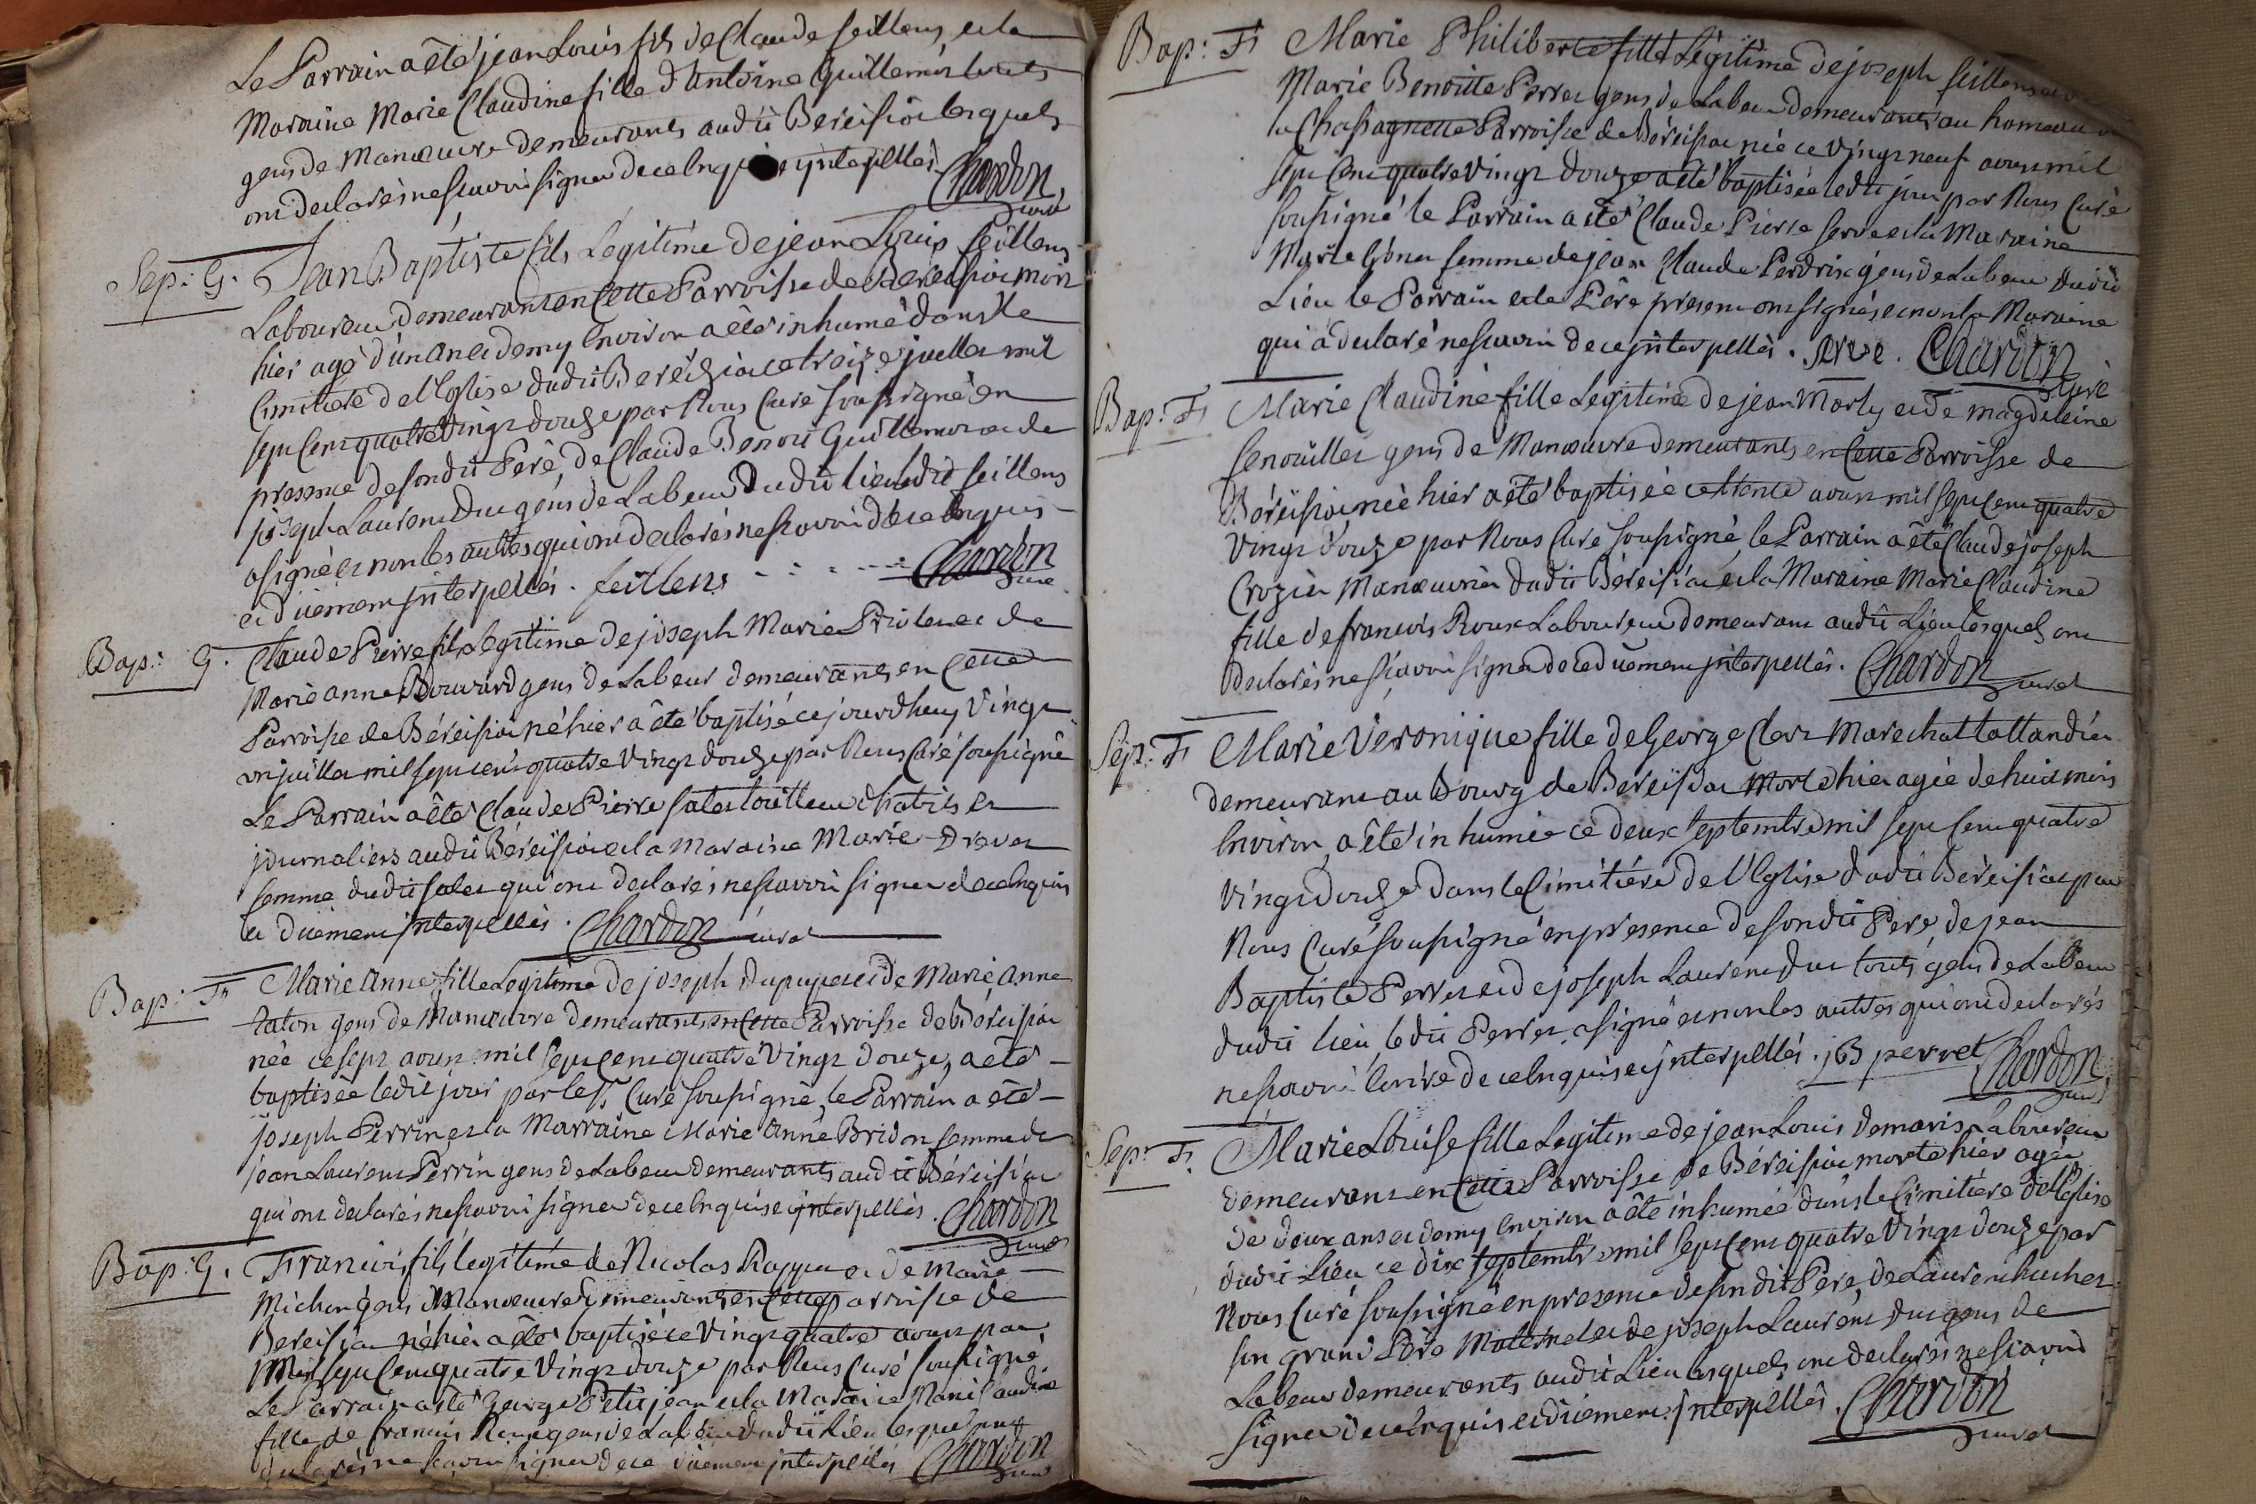 Le Parrain a êté jean Louis fils de Claude feillens, et la
Maraine Marie Claudine fille d'antoine Guillemin touts
gens de Manœuvre demeurants audit Bereisiat lesquels
ont declarés nesçavoir signer de ce enquis et interpellés. Chardon,
curé
Sep: G. Jean Baptiste fils Legitime de jean Louis feillens
Laboureur demeurant en Cette Parroisse de Bereisiat mort
hier agé d'un an et demy Environ a êté inhumé dans le
Cimitiere de l'Eglise dudit Bereiziat ce treize juellet mil
sept Cent quatre Vingt douze par Nous Curé soussigné en
presence de son dit Pere, de Claude Benoit Guillemin et de
joseph Laurent Duc gens de Labeur dudit lieu ledit feillens
a signé et non les autres qui ont declarés nesçavoir de ce enquis
et düement jnterpellés. feillens Chardon
curé
Bap: G. Claude Pierre fils Legitime de joseph Marie et de
Marie anne Bouvard gens de Labeur demeurants en Cette
Parroisse de Béreisiat né hier a êté baptisé ce jourdhuy Vingt
un juillet mil sept cent quatre Vingt douze par Nous Curé soussigné
Le Parrain a êté Claude Pierre salet touts deux d'habits et
journaliers audit Béreisiat et la Maraine Marie Drevet
femme dudit salet qui ont declarés nesçavoir signer de ce enquis
et düement jnterpellés. Chardon curé
Bap: F. Marie Anne fille Legitime de joseph Dupupet et de Marie Anne
taton gens de Manœuvre demeurants en Cette Parroisse de Béreisiat
née ce sept aoust mil sept cent quatre Vingt douze, a êté
baptisée ledit jour par le S. Curé soussigné, le Parrain a êté
joseph Perrin et la Marraine Marie Anne Bridon femme de
jean Laurent Perrin gens de Labeur demeurants audit Béreisiat
qui ont declarés nesçavoir signer de ce enquis et jnterpellés. Chardon
curé
Bap: G. Francois fils legitime de Nicolas et de Marie
Michon gens de Manœuvre demeurants en Cette parroisse de
Bereisiat né hier a êté baptisé ce Vingt quatre aoust par
Mil sept Cent quatre Vingt douze par Nous Curé soussigné
Le Parrain a êté George Petitjean et la Maraine Marie Claudine
fille de francois Roux gens de Labeur dudit Lieu lesquels ont
declarés nesçavoir signer de ce düement jnterpellés Chardon
curé
Bap: F. Marie Philiberte fille Légitime de joseph feillens et de
Marie Benoitte Perret gens de Labeur demeurants au hameau de
la Chassagnette Parroisse de Béreisiat née ce vingt neuf aoust mil
sept Cent quatre Vingt douze a êté baptisée ledit jour par Nous Curé
soussigné le Parrain a êté Claude Pierre serve et la Maraine
Marie femme de jean Claude Perdrix gens de Labeur dudit
Lieu le Parrain et le Pére present ont signés et non la Maraine
qui a declaré nesçavoir de ce jnterpellés. serve. Chardon
curé
Bap: F. Marie Claudine fille Legitime de jean Morly et de Magdeleine
Genouillet gens de Manœuvre demeurants en Cette Parroisse de
Béreisiat née hier a êté baptisée ce trente aoust mil sept Cent quatre
Vingt douze par Nous Curé soussigné, le Parrain a êté Claude joseph
Crozier Manœuvrier dudit Béreisiat et la Maraine Marie Claudine
fille de francois Roux Laboureur demeurant audit Lieu lesquels ont
declarés nesçavoir signer de ce düement jnterpellés. Chardon curé
Sep: F. Marie Véronique fille de George Clerc Marechal tallandier
demeurant au Bourg de Bereisiat Morte hier agée de huit mois
Environ, a êté inhumée ce deux septembre mil sept Cent quatre
Vingt douze dans le Cimitiére de l'Eglise dudit Béreisiat par
Nous Curé soussigné en presence de son dit Pere, de jean
Baptiste Perret et de joseph Laurent Duc touts gens de Labeur
dudit lieu, ledit Perret a signé et non les autres qui ont declarés
nesçavoir Ecrire de ce enquis et jnterpellés. jB perret Chardon,
curé
Sep: F. Marie Louise fille Legitime de jean Louis Demaris Laboureur
demeurant en Cette Parroisse de Béreisiat morte hier agée
de deux ans et demy Environ a êté inhumée dans le Cimitiére de l'Eglise
dudit Lieu ce dix septembre mil sept Cent quatre Vingt douze par
Nous Curé soussigné en presence de son dit Pére, de Laurent
son grand Pére Maternel et de joseph Laurent Duc gens de
Labeur demeurants audit Lieu lesquels ont declarés nesçavoir
signer de ce enquis et düement jnterpellés. Chardon
curé